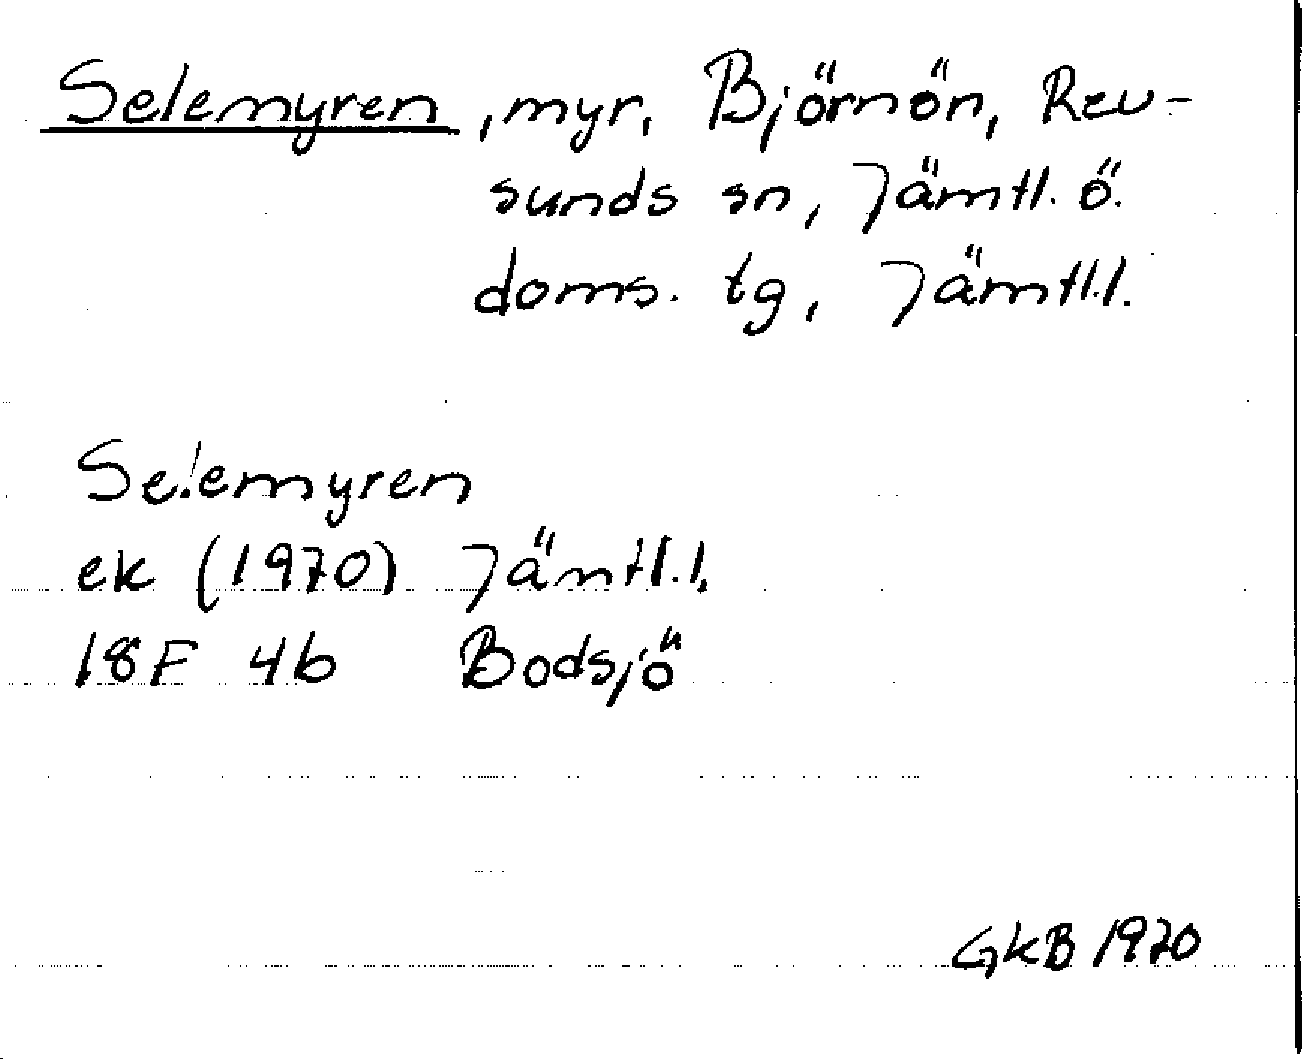 Selemyren, myr, Björnön, Rev-
sunds sn, Jämtl. ö.
doms. tg, Jämtl.l.
Selemyren
ek (1970) Jämtl.l.
18F 4b Bodsjö
GKB 1970